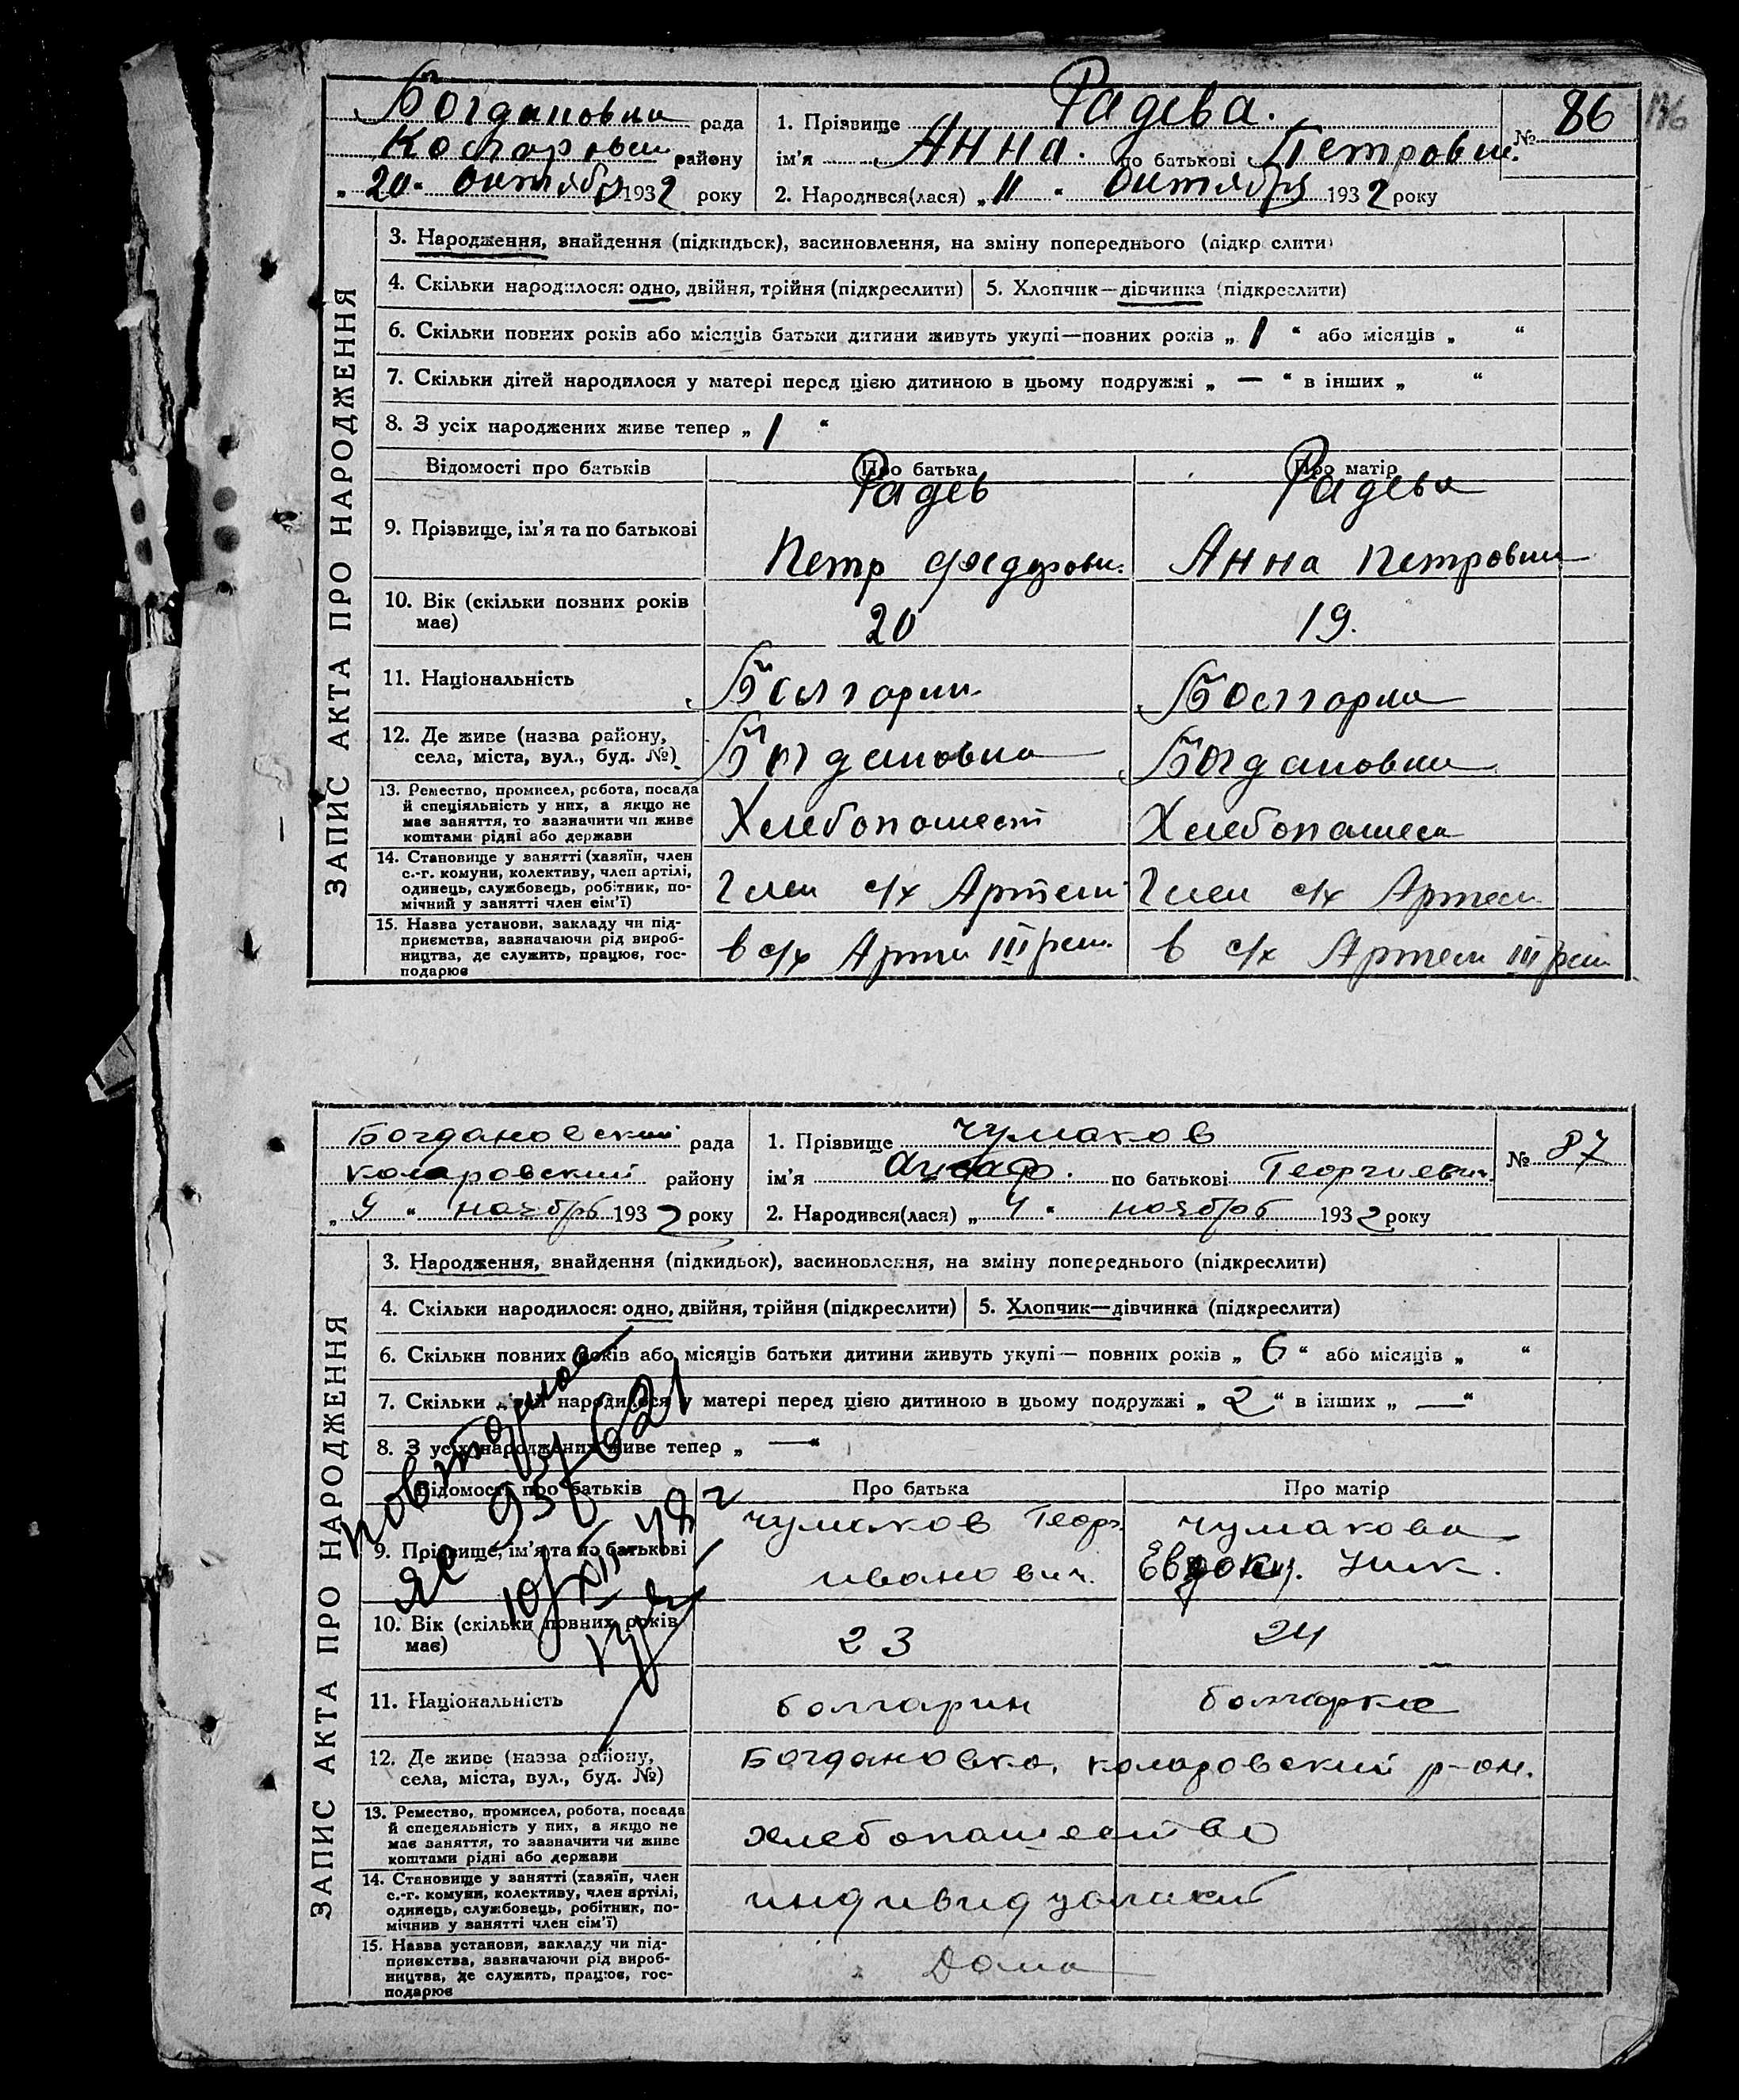 Богдановка рада
Коларовск района
„20“ октября 1932 року
1. Прізвище Радева.
ім'я Анна. по батькові Петровн.
2. Народився(лася) „11“ октября 1932 року
№ 86
ЗАПИС АКТА ПРО НАРОДЖЕННЯ
3. Народження, знайдення (підкидьок), засиновлення, на зміну попереднього
4. Скільки народилося: одно, двійня, трійня (підкреслити)
5. Хлопчик—дівчинка (підкреслити)
6. Скільки повних років або місяців батьки дитини живуть укупі—повних років „1“ або місяців „ “
7. Скільки дітей народилося у матері перед цією дитиною в цьому подружжі „—“ в інших „ “
8. З усіх народжених живе тепер „1“
Відомості про батьків Про батька Про матір
9. Прізвище, ім'я та по батькові
Радев
Петр
Радева
Анна Петровн
10. Вік (скільки повних років
має)
20
19.
11. Національність
12. Де живе (назва району,
села, міста, вул., буд. №)
Богдановка
Богдановка
13. Ремество, промисел, робота, посада
й спеціяльність у них, а якщо не
має заняття, то зазначити чи живе
коштами рідні або держави
14. Становище у занятті (хазяїн, член
с.-г. комуни, колективу, член артілі,
одинець, службовець, робітник, по-
мічний у занятті член сім'ї)
Член с/х Артели
Член с/х Артели
15. Назва установи, закладу чи під-
приємства, зазначаючи рід вироб-
ництва, де служить, працює, гос-
подарює
в с/х III
в с/х Артели III
Богдановский рада
Коларовский району
„9“ ноября 1932 року
1. Прізвище Чумаков
ім'я по батькові Георгиевич.
2. Народився(лася) „4“ ноября 1932 року
№ 87
ЗАПИС АКТА ПРО НАРОДЖЕННЯ
3. Народження, знайдення (підкидьок), засиновлення, на зміну попереднього (підкреслити)
4. Скільки народилося: одно, двійня, трійня (підкреслити)
5. Хлопчик—дівчинка (підкреслити)
6. Скільки повних років або місяців батьки дитини живуть укупі— повних років „6“ або місяців „ “
7. Скільки дітей народилося у матері перед цією дитиною в цьому подружжі „2“ в інших „—“
8. З усіх народжених живе тепер „—“
Відомості про батьків Про батька Про матір
9. Прізвище, ім'я та по батькові
Чумаков Георг.
иванович.
Чумакова
10. Вік (скільки повних років
має)
23
24
11. Національність
болгарин
болгарка
12. Де живе (назва району,
села, міста, вул., буд. №)
Богдановка, коларовский р-он.
13. Ремество, промисел, робота, посада
й спецеяльність у них, а якщо не
має заняття, то зазначити чи живе
коштами рідні або держави
хлебопашество
14. Становище у занятті (хазяїн, член
с.-г. комуни, колективу, член артілі,
одинець, службовець, робітник, по-
мічнив у занятті член сім'ї)
15. Назва установи, закладу чи під-
приємства, зазначаючи рід вироб-
ництва, де служить, працює, гос-
подарює
Дома